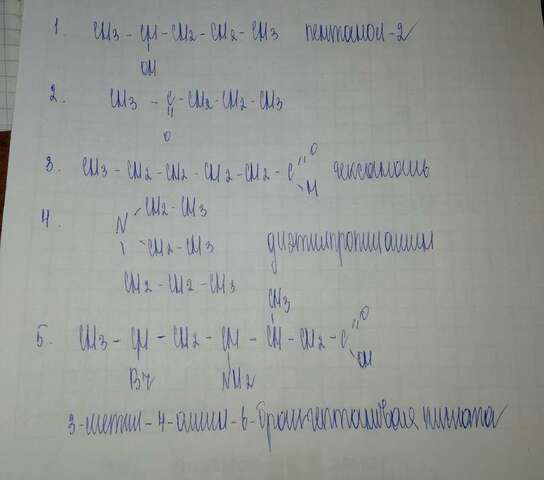 1. CH3 - CH - CH2 - CH2 - CH3 пентанол-2
OH
2. CH3 - C - CH2 - CH2 - CH3
O
3. CH3 - CH2 - CH2 - CH2 - CH2 - C O H гексаналь
4. N CH2 - CH3
CH2 - CH3
CH2 - CH2 - CH3
диэтилпропиламин
CH3
5. CH3 - CH - CH2 - CH - CH - CH2 - C O OH
Br NH2
3-метил-4-амин-6-бромгептановая кислота